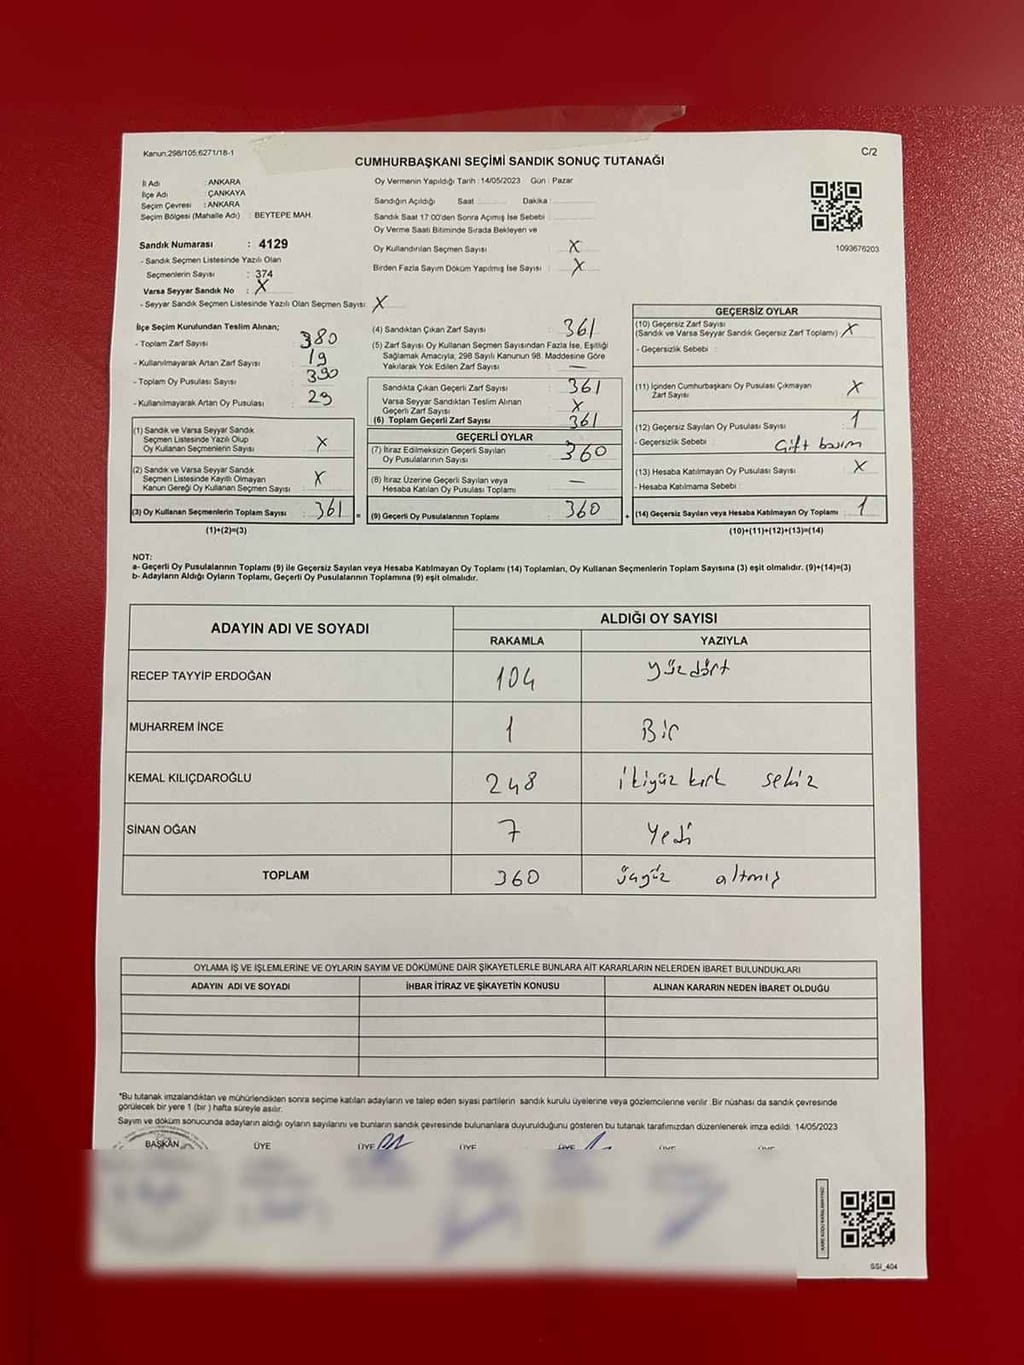 Kanun:298/105;6271/18-1
C/2
CUMHURBAŞKANI SEÇİMİ SANDIK SONUÇ TUTANAĞI
İl Adı : ANKARA
İlçe Adı : ÇANKAYA
Seçim Çevresi : ANKARA
Seçim Bölgesi (Mahalle Adı) : BEYTEPE MAH.
Sandık Numarası : 4129
- Sandık Seçmen Listesinde Yazılı Olan
Seçmenlerin Sayısı : 374
Varsa Seyyar Sandık No : X
- Seyyar Sandık Seçmen Listesinde Yazılı Olan Seçmen Sayısı: X
Oy Vermenin Yapıldığı Tarih : 14/05/2023 Gün : Pazar
Sandığın Açıldığı Saat Dakika :
Sandık Saat 17:00'den Sonra Açılmış İse Sebebi :
Oy Verme Saati Bitiminde Sırada Bekleyen ve
Oy Kullandırılan Seçmen Sayısı X
Birden Fazla Sayım Döküm Yapılmış İse Sayısı : X
1093676203
İlçe Seçim Kurulundan Teslim Alınan;
- Toplam Zarf Sayısı : 380
- Kullanılmayarak Artan Zarf Sayısı : 19
- Toplam Oy Pusulası Sayısı : 390
- Kullanılmayarak Artan Oy Pusulası : 29
(1) Sandık ve Varsa Seyyar Sandık
Seçmen Listesinde Yazılı Olup
Oy Kullanan Seçmenlerin Sayısı X
(2) Sandık ve Varsa Seyyar Sandık
Seçmen Listesinde Kayıtlı Olmayan
Kanun Gereği Oy Kullanan Seçmen Sayısı X
(3) Oy Kullanan Seçmenlerin Toplam Sayısı 361
(1)+(2)=(3)
(4) Sandıktan Çıkan Zarf Sayısı 361
(5) Zarf Sayısı Oy Kullanan Seçmen Sayısından Fazla İse, Eşitliği
Sağlamak Amacıyla, 298 Sayılı Kanunun 98. Maddesine Göre
Yakılarak Yok Edilen Zarf Sayısı : —
Sandıkta Çıkan Geçerli Zarf Sayısı 361
Varsa Seyyar Sandıktan Teslim Alınan
Geçerli Zarf Sayısı X
(6) Toplam Geçerli Zarf Sayısı 361
GEÇERLİ OYLAR
(7) İtiraz Edilmeksizin Geçerli Sayılan
Oy Pusulalarının Sayısı 360
(8) İtiraz Üzerine Geçerli Sayılan veya
Hesaba Katılan Oy Pusulası Toplamı —
(9) Geçerli Oy Pusulalarının Toplamı 360
GEÇERSİZ OYLAR
(10) Geçersiz Zarf Sayısı
(Sandık ve Varsa Seyyar Sandık Geçersiz Zarf Toplamı) X
- Geçersizlik Sebebi :
(11) İçinden Cumhurbaşkanı Oy Pusulası Çıkmayan
Zarf Sayısı X
(12) Geçersiz Sayılan Oy Pusulası Sayısı : 1
- Geçersizlik Sebebi Çift basım
(13) Hesaba Katılmayan Oy Pusulası Sayısı X
- Hesaba Katılmama Sebebi :
(14) Geçersiz Sayılan veya Hesaba Katılmayan Oy Toplamı 1
(10)+(11)+(12)+(13)=(14)
NOT:
a- Geçerli Oy Pusulalarının Toplamı (9) ile Geçersiz Sayılan veya Hesaba Katılmayan Oy Toplamı (14) Toplamları, Oy Kullanan Seçmenlerin Toplam Sayısına (3) eşit olmalıdır. (9)+(14)=(3)
b- Adayların Aldığı Oyların Toplamı, Geçerli Oy Pusulalarının Toplamına (9) eşit olmalıdır.
ADAYIN ADI VE SOYADI
ALDIĞI OY SAYISI
RAKAMLA YAZIYLA
RECEP TAYYİP ERDOĞAN 104 yüzdört
MUHARREM İNCE 1 Bir
KEMAL KILIÇDAROĞLU 248 ikiyüz kırk sekiz
SİNAN OĞAN 7 Yedi
TOPLAM 360 üçyüz altmış
OYLAMA İŞ VE İŞLEMLERİNE VE OYLARIN SAYIM VE DÖKÜMÜNE DAİR ŞİKAYETLERLE BUNLARA AİT KARARLARIN NELERDEN İBARET BULUNDUKLARI
ADAYIN ADI VE SOYADI İHBAR İTİRAZ VE ŞİKAYETİN KONUSU ALINAN KARARIN NEDEN İBARET OLDUĞU
*Bu tutanak imzalandıktan ve mühürlendikten sonra seçime katılan adayların ve talep eden siyasi partilerin sandık kurulu üyelerine veya gözlemcilerine verilir .Bir nüshası da sandık çevresinde
görülecek bir yere 1 (bir ) hafta süreyle asılır.
Sayım ve döküm sonucunda adayların aldığı oyların sayılarını ve bunların sandık çevresinde bulunanlara duyurulduğunu gösteren bu tutanak tarafımızdan düzenlenerek imza edildi. 14/05/2023
BAŞKAN ÜYE ÜYE ÜYE ÜYE ÜYE ÜYE
SSI_404